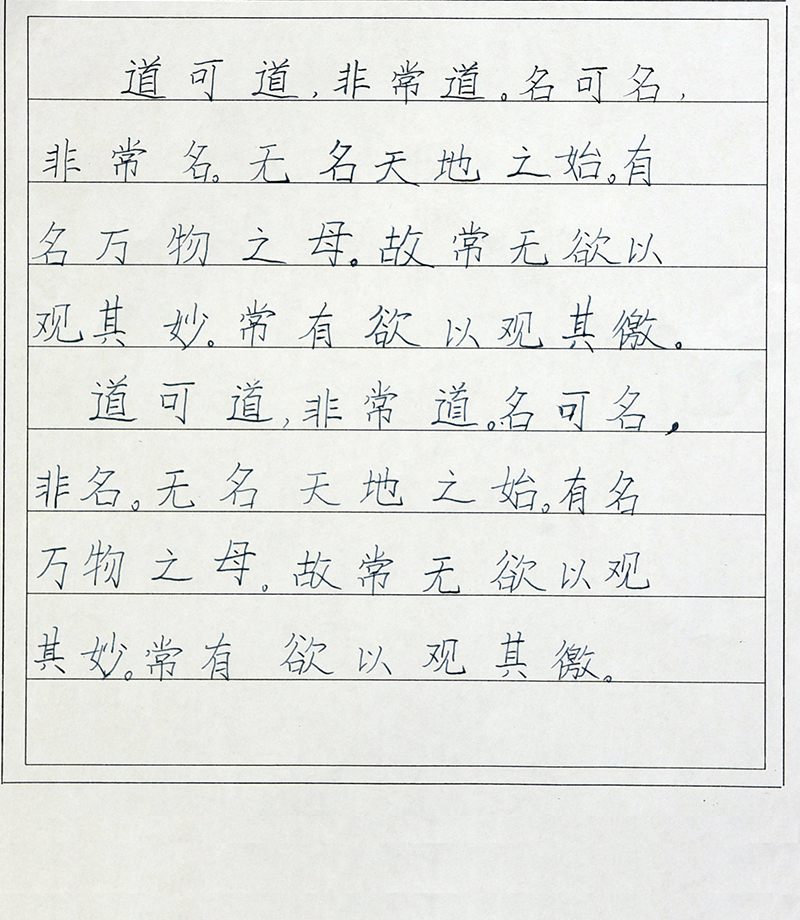 道可道，非常道。名可名，
非常名。无名天地之始。有
名万物之母。故常无欲以
观其妙。常有欲以观其徼。
道可道，非常道。名可名，
非名。无名天地之始。有名
万物之母。故常无欲以观
其妙。常有欲以观其徼。